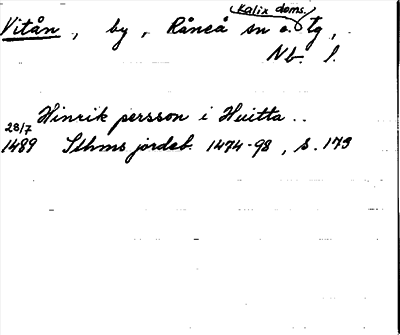 Kalix doms.
Vitån, by, Råneå sn o. tg,
Nb. l.
Hinrik persson i Huitta ..
28/7
1489 Sthms jordeb. 1474-98, s. 173